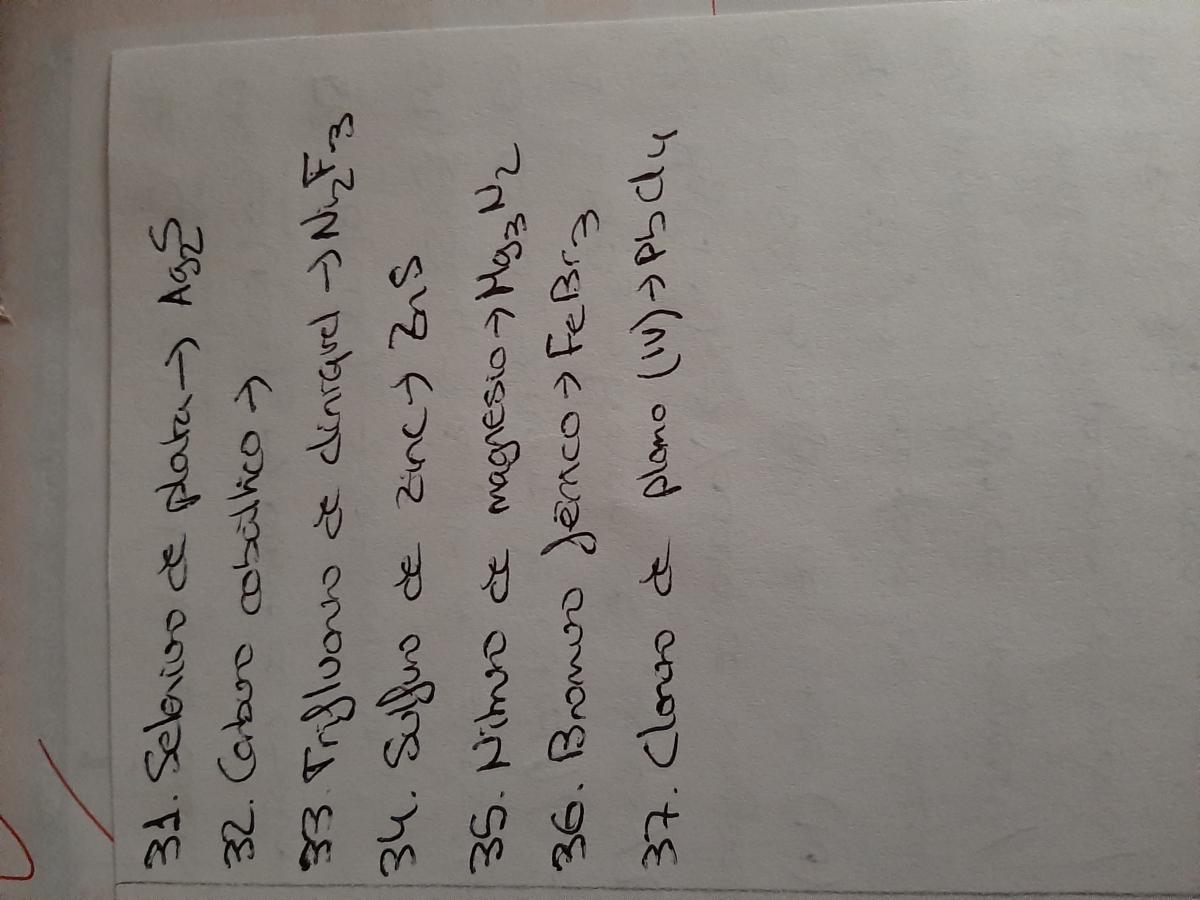 31. Seleniuro de plata → Ag2S
32. Carburo cobáltico →
33. Trifluoruro de diniquel → Ni2F3
34. Sulfuro de zinc → ZnS
35. Nitruro de magnesio → Mg3N2
36. Bromuro férrico → FeBr3
37. Cloruro de plomo (IV) → PbCl4